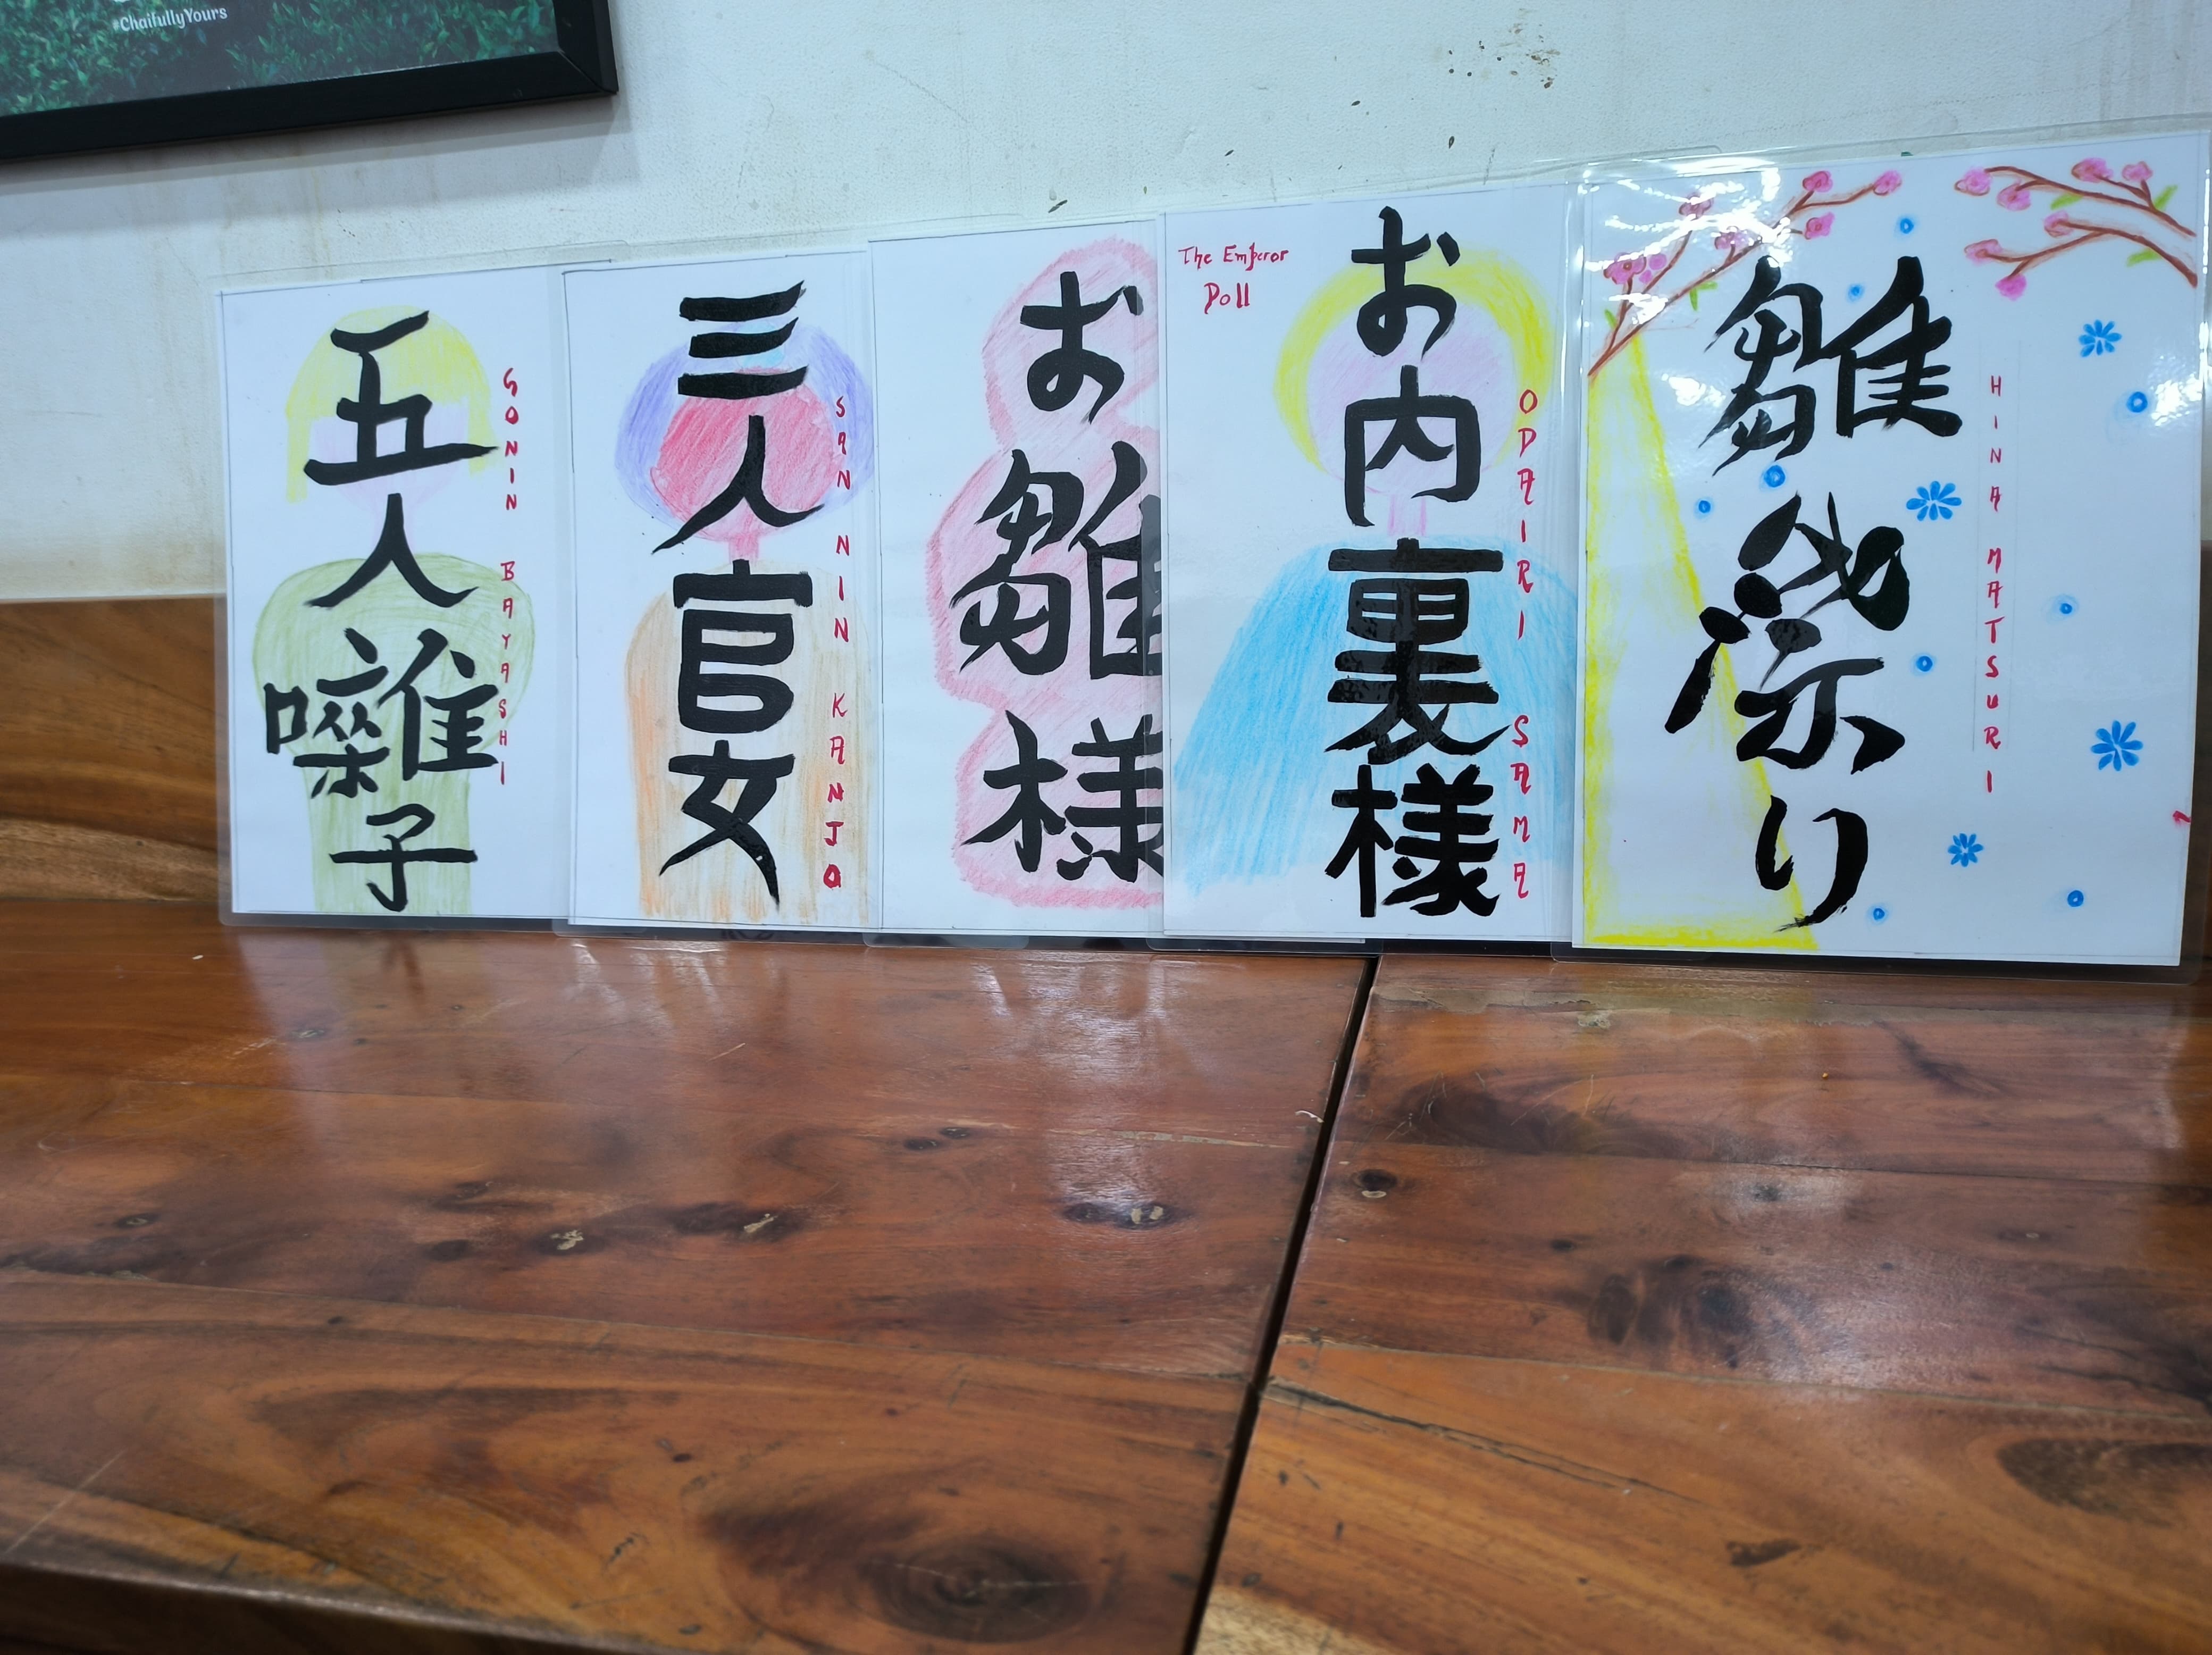 #ChaifullyYours
五人囃子
GONIN BAYASHI
三人官女
SAN NIN KANJO
お雛様
The Emperor
Doll
お内裏様
ODAIRI SAMA
雛祭り
HINA MATSURI